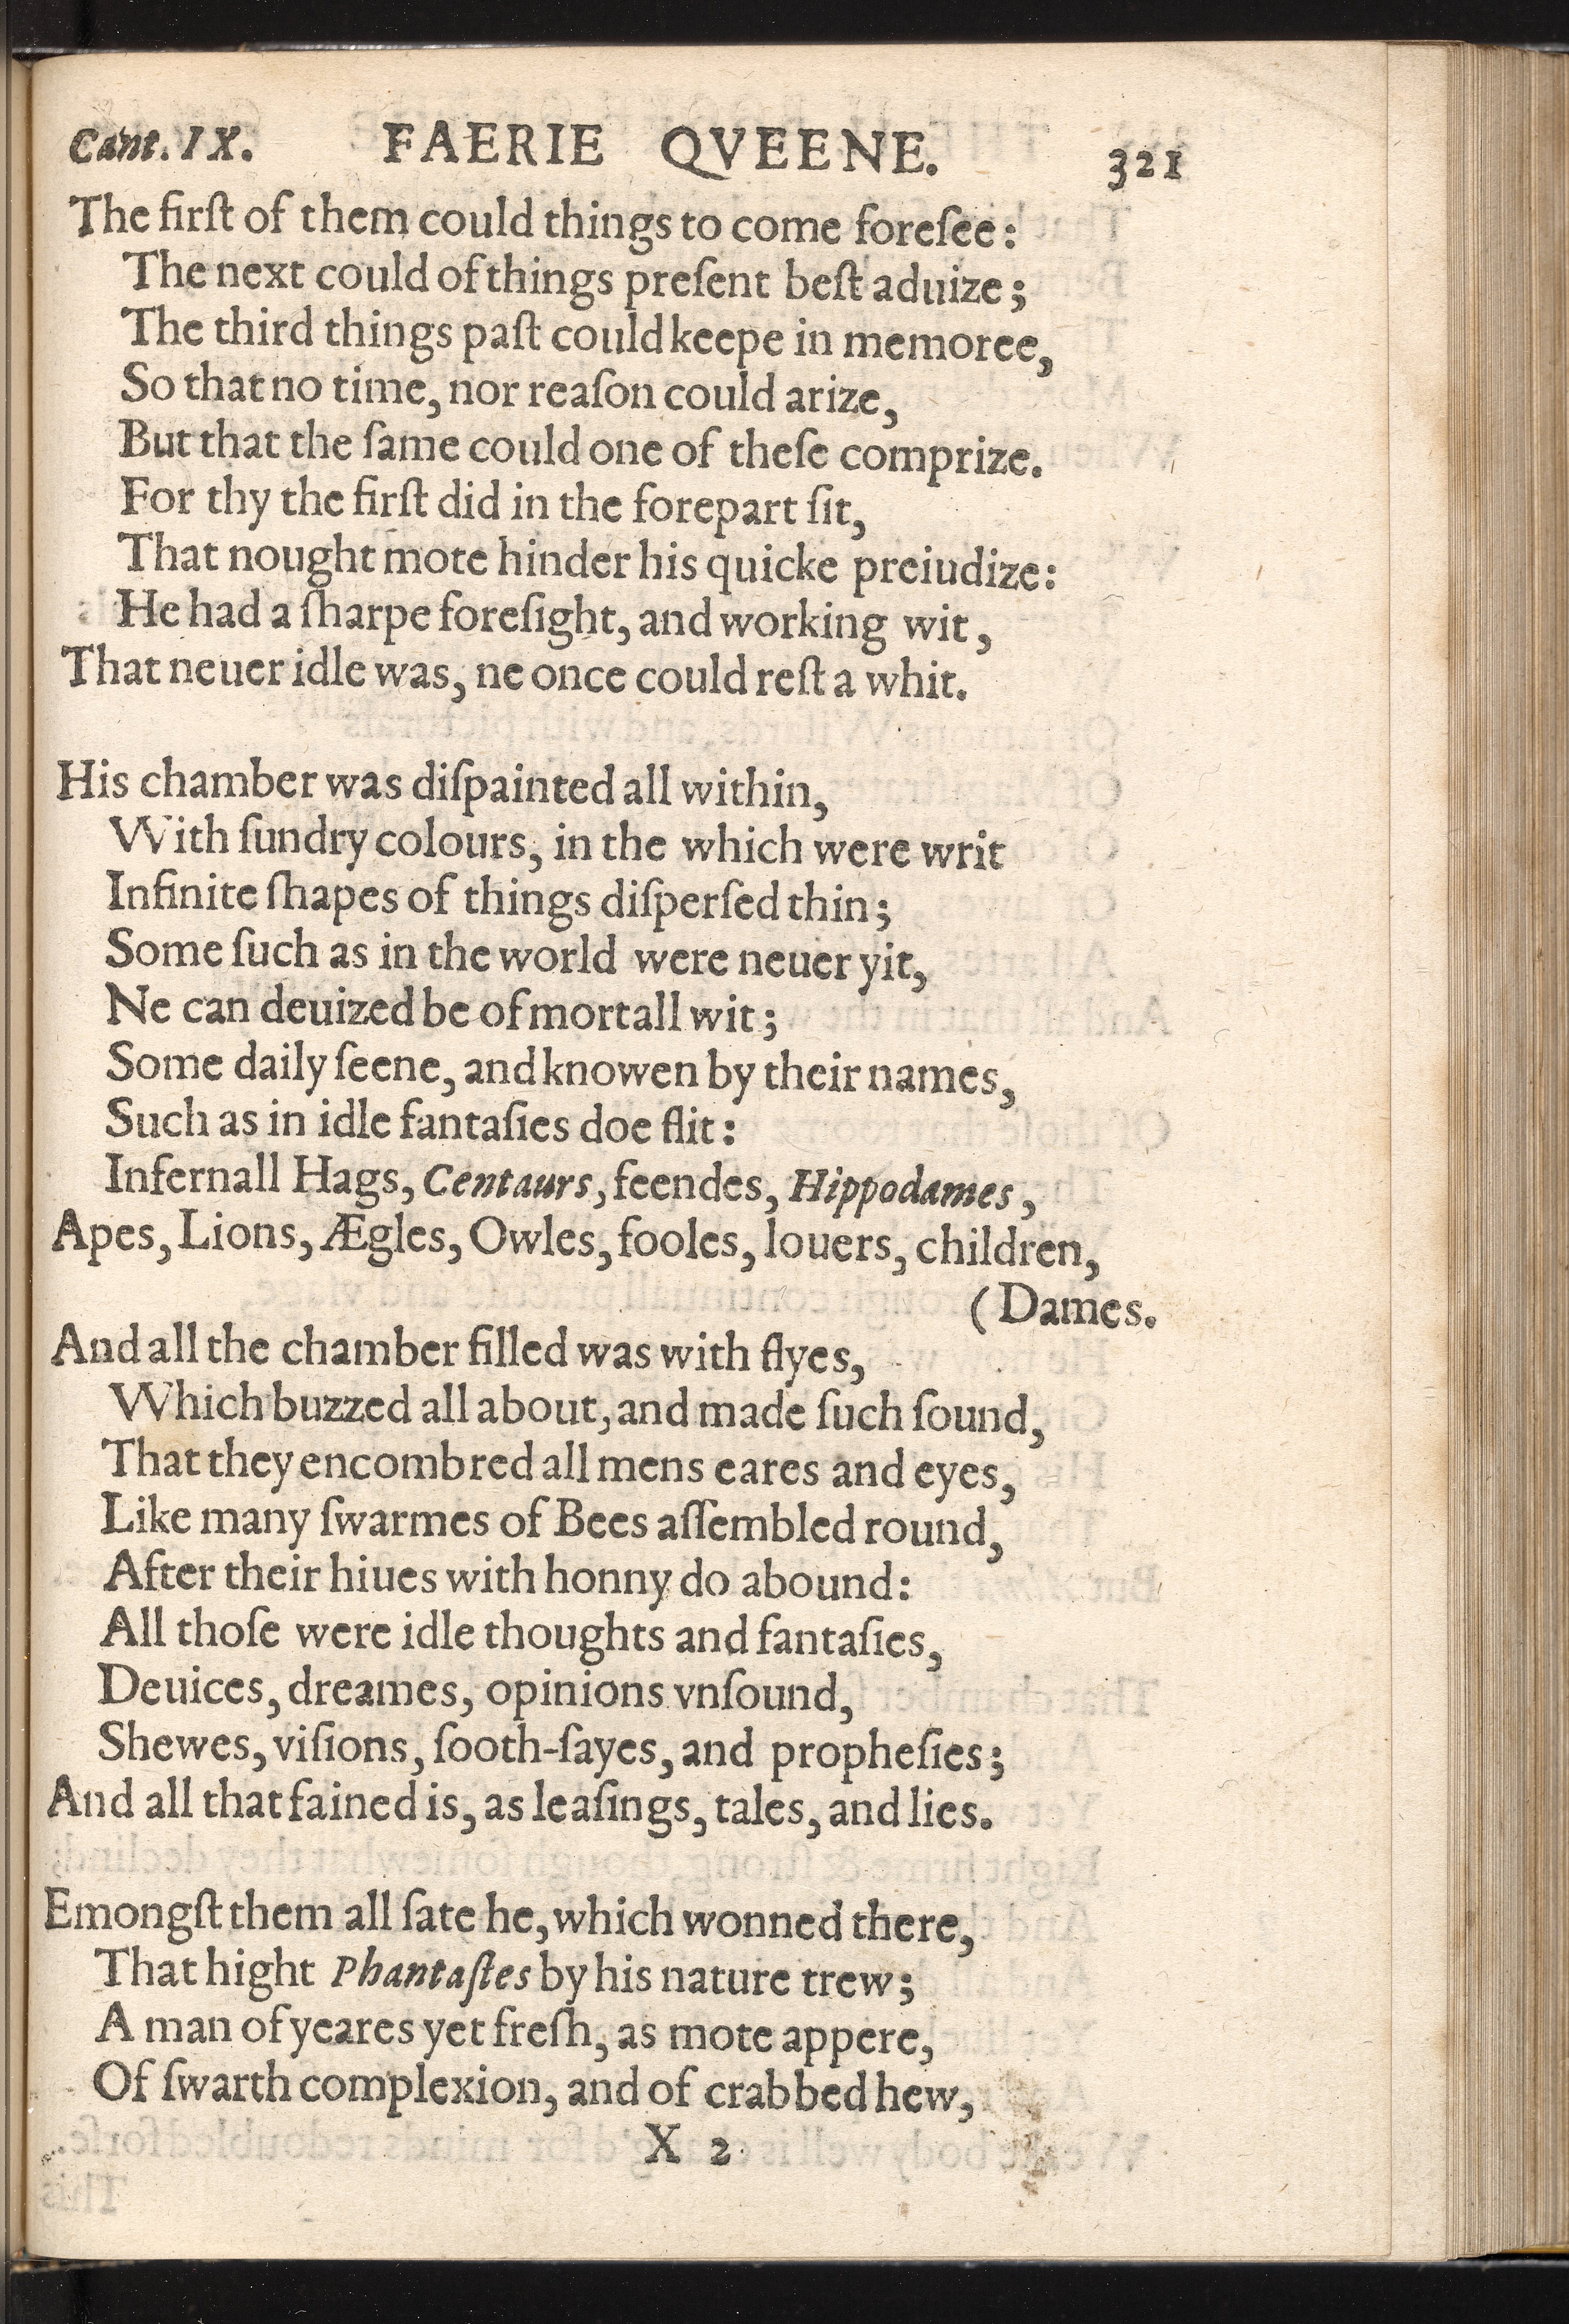 Cant. IX. FAERIE QVEENE. 321
The firſt of them could things to come foreſee:
The next could of things preſent beſt aduize;
The third things paſt could keepe in memoree,
So that no time, nor reaſon could arize,
But that the ſame could one of theſe comprize.
For thy the firſt did in the forepart ſit,
That nought mote hinder his quicke preiudize:
He had a ſharpe foreſight, and working wit,
That neuer idle was, ne once could reſt a whit.
His chamber was diſpainted all within,
With ſundry colours, in the which were writ
Infinite ſhapes of things diſperſed thin;
Some ſuch as in the world were neuer yit,
Ne can deuized be of mortall wit;
Some daily ſeene, and knowen by their names,
Such as in idle fantaſies doe flit:
Infernall Hags, Centaurs, feendes, Hippodames,
Apes, Lions, Ægles, Owles, fooles, louers, children,
(Dames.
And all the chamber filled was with flyes,
Which buzzed all about, and made ſuch ſound,
That they encombred all mens eares and eyes,
Like many ſwarmes of Bees aſſembled round,
After their hiues with honny do abound:
All thoſe were idle thoughts and fantaſies,
Deuices, dreames, opinions vnſound,
Shewes, viſions, ſooth-ſayes, and propheſies;
And all that fained is, as leaſings, tales, and lies.
Emongſt them all ſate he, which wonned there,
That hight Phantaſtes by his nature trew;
A man of yeares yet freſh, as mote appere,
Of ſwarth complexion, and of crabbed hew,
X 2